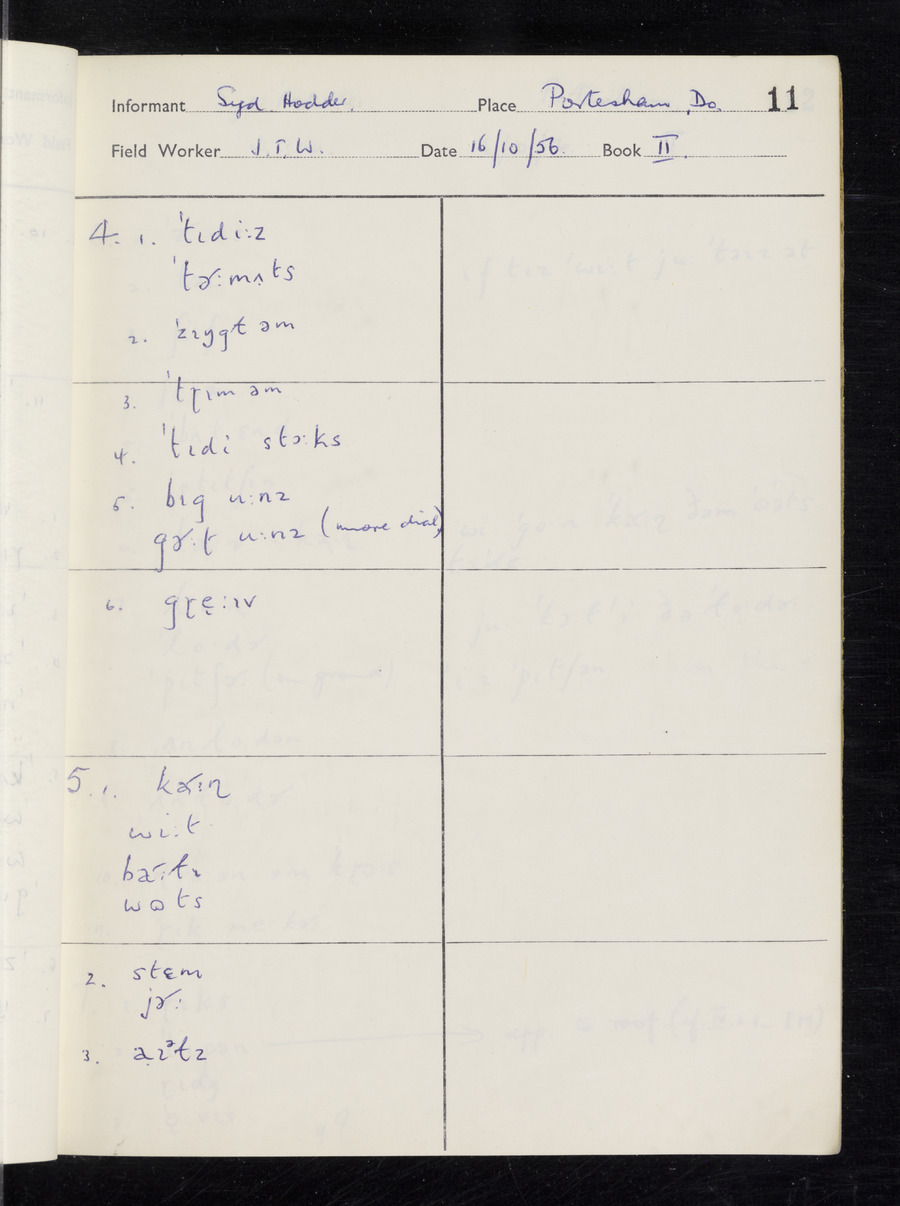 Informant Syd Hodder. Place Portesham, Do. 11
Field Worker J.T.W. Date 16/10/56. Book II.
4. 1. ˈtɪdiːz
ˈtɚːmʌts
2. ˈzɪygt əm
3. ˈtɽɪm əm
4. ˈtɪdi stɔːks
5. bɪg uːnz
gɚːt uːnz (more dial)
6. gɽẹːɪv
5. 1. kɚːɳ
wiːt
baːɽɫɪ
wɒts
2. stɛm
jɚː
3. aɪᵊtz